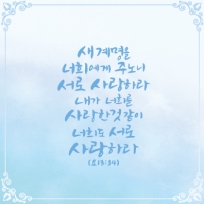 새 계명을
너희에게 주노니
서로 사랑하라
내가 너희를
사랑한것 같이
너희도 서로
사랑하라
(요13:34)